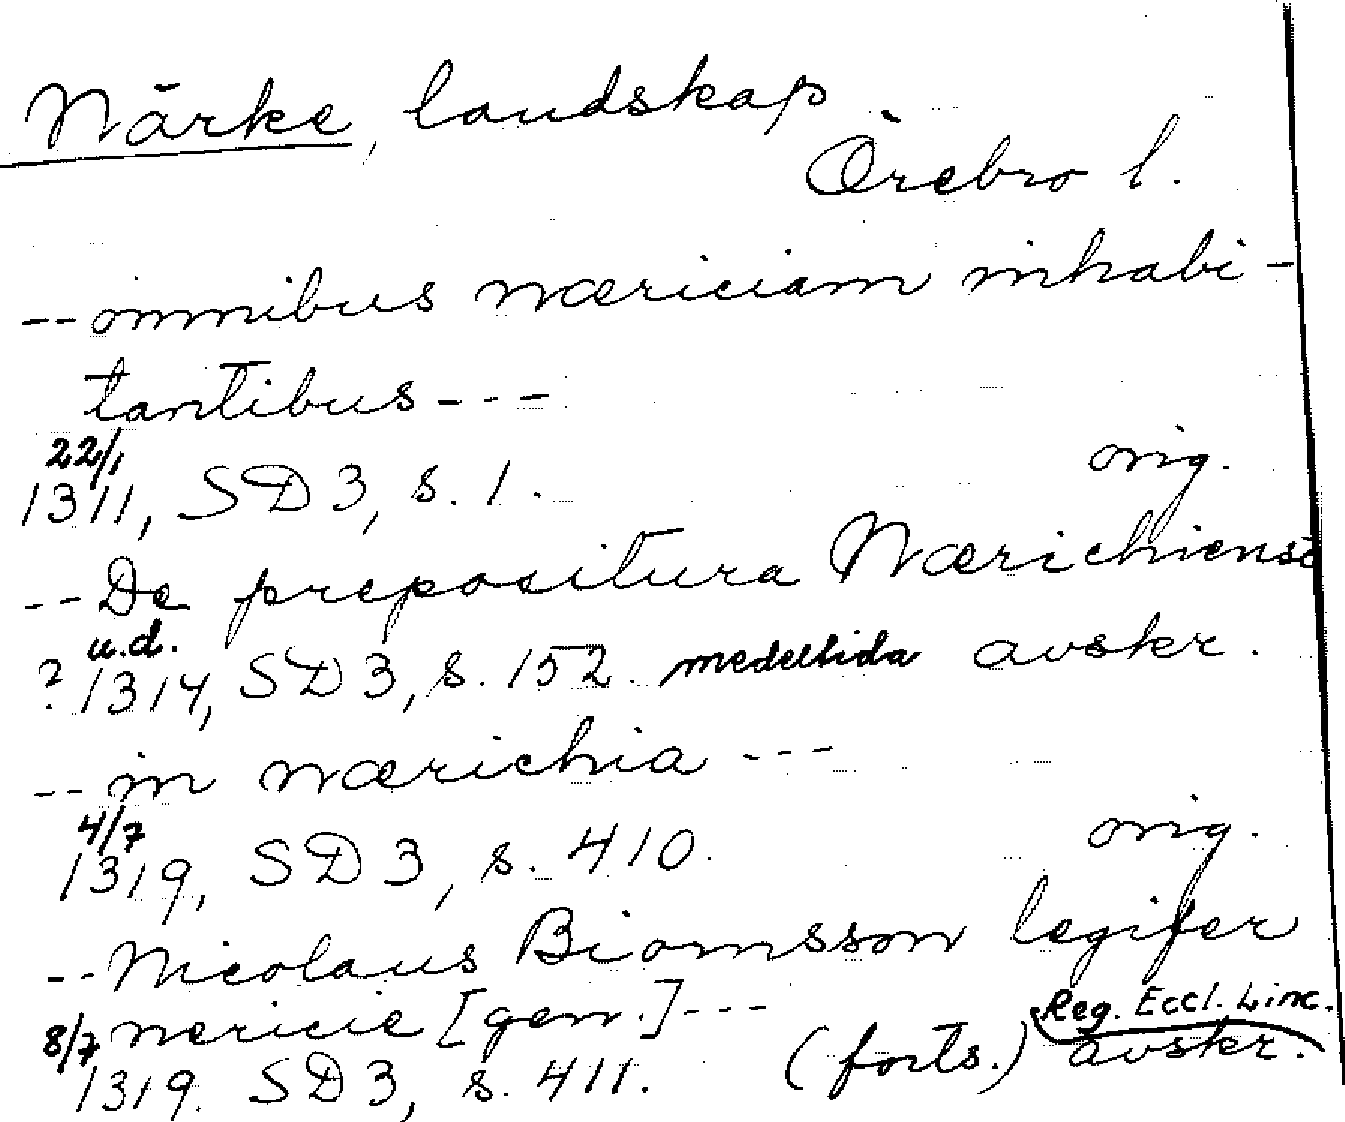 Närke, landskap
Örebro l.
-- omnibus næriciam inhabi-
tantibus ---
22/1
1311, SD 3, s. 1. orig.
-- De prepositura Nærichiensi
u.d.
? 1314, SD 3, s. 152. medeltida avskr.
-- in nærichia ---
4/7
1319, SD 3, s. 410. orig.
-- Nicolaus Biornsson legifer
nericie [gen.] --- Reg. Eccl. Linc.
8/7
1319. SD 3, s. 411. (forts.) avskr.